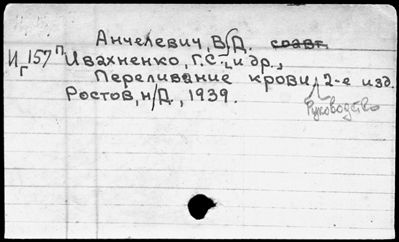 Анчелевич, В.Д. соавт.
И 157 П Ивахненко, Г.С. и др.,
Г Переливание крови, 2-е изд.
Руководство
Ростов, н/Д, 1939.